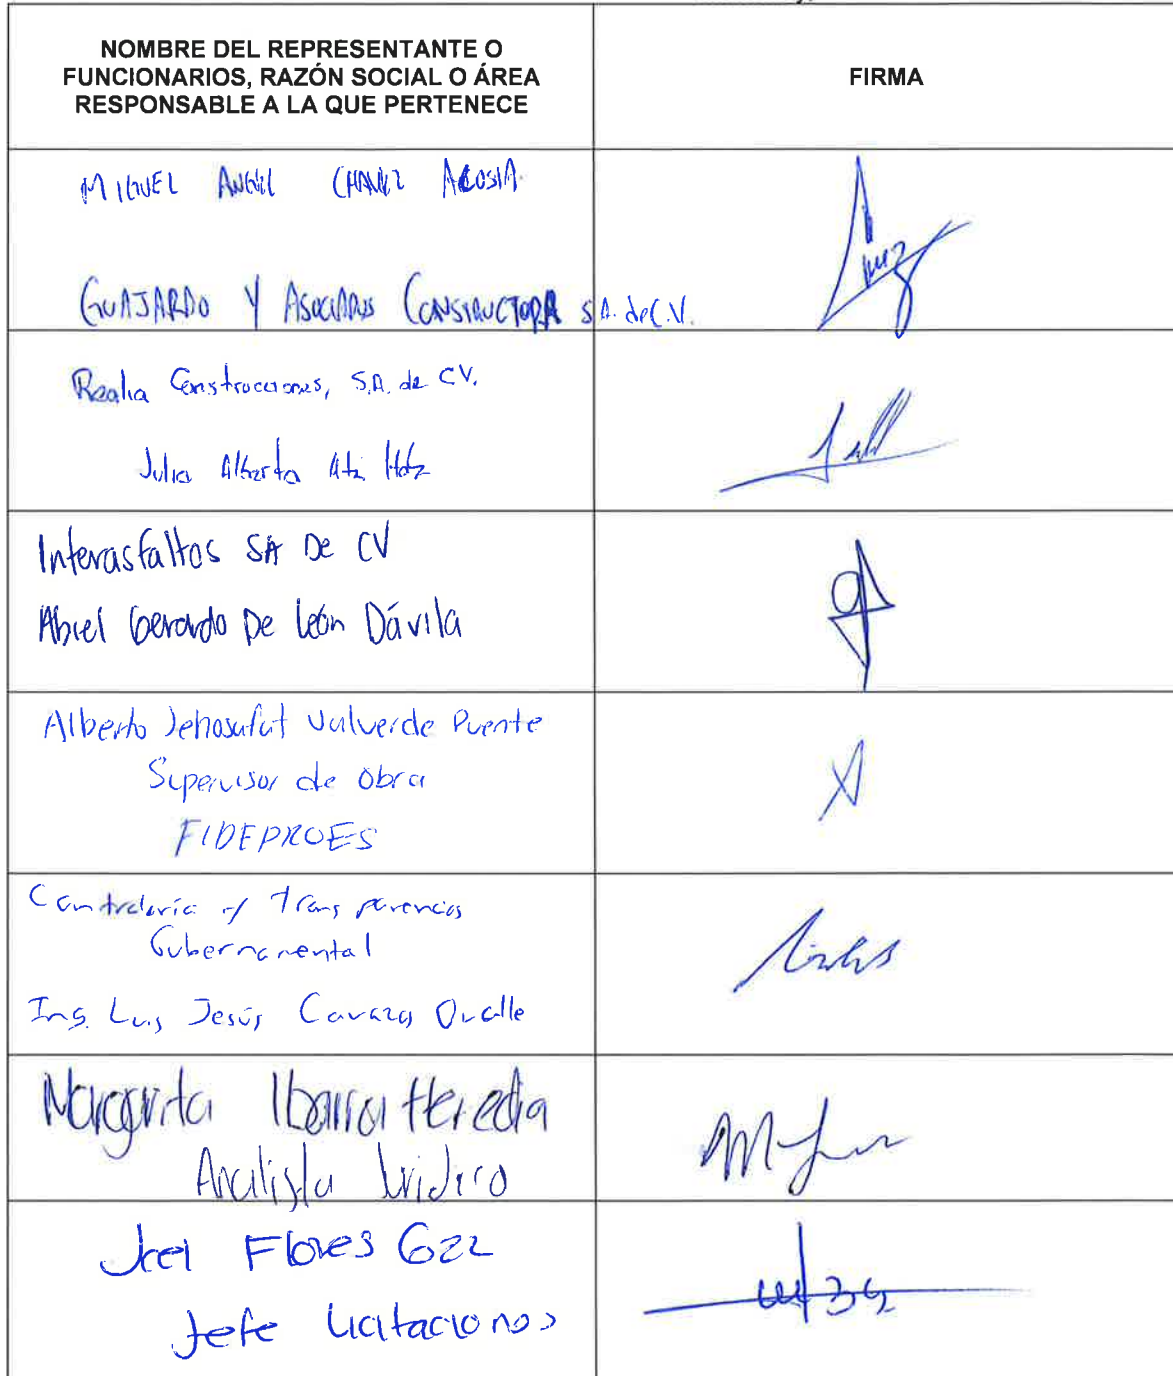 NOMBRE DEL REPRESENTANTE O
FUNCIONARIOS, RAZÓN SOCIAL O ÁREA
RESPONSABLE A LA QUE PERTENECE
FIRMA
MIGUEL ANGEL CHAVEZ ACOSTA
GUAJARDO Y ASOCIADOS CONSTRUCTORA S.A. de C.V.
Realia Construcciones, S.A. de CV.
Julio Alberto
Interasfaltos SA De CV
Abiel Gerardo De León Dávila
Alberto Jehosafat Valverde Puente
Supervisor de Obra
FIDEPROES
Contraloría y Transparencia
Gubernamental
Ing. Luis Jesús Cavazos Ovalle
Margarita Ibarra Heredia
Analista Jurídico
Joel Flores Gzz
Jefe Licitaciones